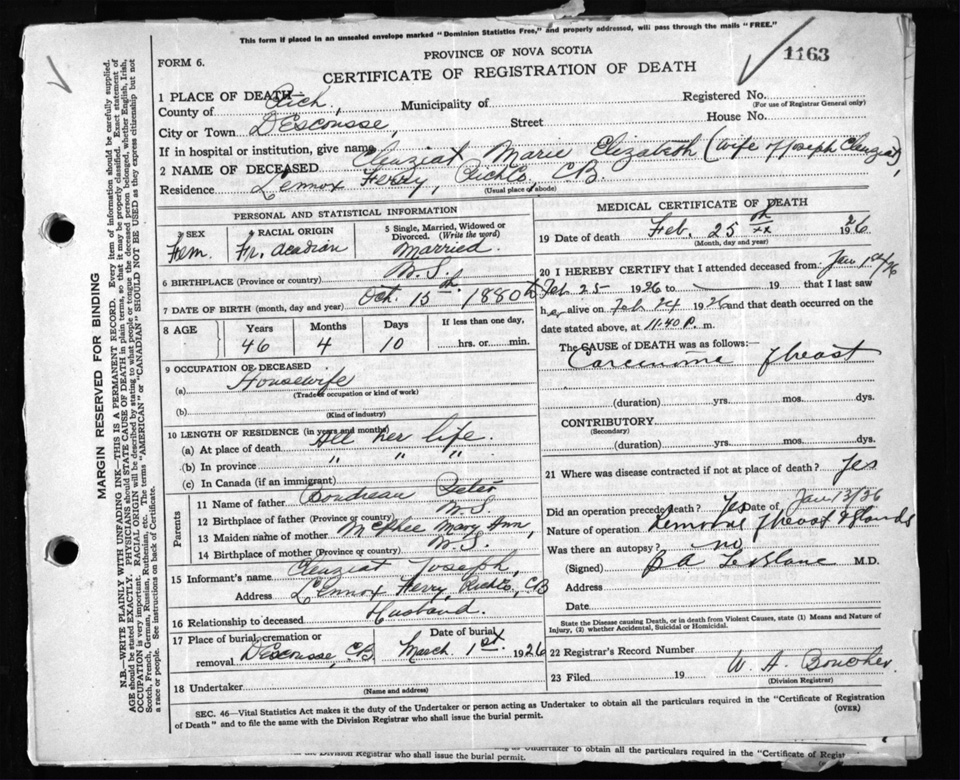 This form if placed in an unsealed envelope marked "Dominion Statistics Free," and properly addressed, will pass through the mails "FREE."
PROVINCE OF NOVA SCOTIA
1163
FORM 6.
CERTIFICATE OF REGISTRATION OF DEATH
1 PLACE OF DEATH
County of Rich, Municipality of Registered No.
(For use of Registrar General only)
City or Town D'Escousse, Street House No.
If in hospital or institution, give name
2 NAME OF DECEASED Cleuziat Marie Elizabeth (wife of Joseph Cleuziat),
Residence Lennox Ferry, Rich Co, CB.
(Usual place of abode)
PERSONAL AND STATISTICAL INFORMATION
3 SEX
Fem.
4 RACIAL ORIGIN
Fr. Acadian
5 Single, Married, Widowed or Divorced. (Write the word)
Married.
6 BIRTHPLACE (Province or country) N.S.
7 DATE OF BIRTH (month, day and year) Oct. 15th 1880
8 AGE Years Months Days If less than one day,
46 4 10 hrs. or min.
9 OCCUPATION OF DECEASED
(a) Housewife
(Trade or occupation or kind of work)
(b)
(Kind of industry)
10 LENGTH OF RESIDENCE (in years and months)
(a) At place of death All her life.
(b) In province " " "
(c) In Canada (if an immigrant)
Parents
11 Name of father Boudreau Peter
12 Birthplace of father (Province or country) N.S.
13 Maiden name of mother McPhee Mary Ann,
14 Birthplace of mother (Province or country) N.S.
15 Informant's name Cleuziat Joseph,
Address Lennox Ferry, Rich Co, CB
16 Relationship to deceased Husband.
17 Place of burial, cremation or removal D'Escousse, CB
Date of burial March 1st. 1926
18 Undertaker
(Name and address)
MEDICAL CERTIFICATE OF DEATH
19 Date of death Feb. 25th 1926
(Month, day and year)
20 I HEREBY CERTIFY that I attended deceased from Jan 1st
Feb 25 1926 to 19 that I last saw
her alive on Feb 24 1926 and that death occurred on the
date stated above, at 11:40 P. m.
The CAUSE of DEATH was as follows:—
Carcinoma of breast
(duration) yrs. mos. dys.
CONTRIBUTORY
(Secondary)
(duration) yrs. mos. dys.
21 Where was disease contracted if not at place of death? Yes
Did an operation precede death? Yes Date of Jan 13/26
Nature of operation Removal of breast & glands
Was there an autopsy? no
(Signed) B A LeBlanc M.D.
Address
Date
State the Disease causing Death, or in death from Violent Causes, state (1) Means and Nature of Injury, (2) whether Accidental, Suicidal or Homicidal.
22 Registrar's Record Number
23 Filed 19 W. A. Boucher
(Division Registrar)
SEC. 46—Vital Statistics Act makes it the duty of the Undertaker or person acting as Undertaker to obtain all the particulars required in the "Certificate of Registration
of Death" and to file the same with the Division Registrar who shall issue the burial permit.
(OVER)
MARGIN RESERVED FOR BINDING
N.B.—WRITE PLAINLY WITH UNFADING INK—THIS IS A PERMANENT RECORD. Every item of information should be carefully supplied.
AGE should be stated EXACTLY. PHYSICIANS should STATE CAUSE OF DEATH in plain terms, so that it may be properly classified. Exact statement of
OCCUPATION is very important. RACIAL ORIGIN will be described by stating to what people or tongue the deceased person belonged, whether English, Irish,
Scotch, French, German, Russian, Ruthenian, etc. The terms "AMERICAN" or "CANADIAN" SHOULD NOT BE USED as they express citizenship but not
a race or people. See instructions on back of Certificate.
as Undertaker to obtain all the particulars required in the "Certificate of Regist
the Division Registrar who shall issue the burial permit.